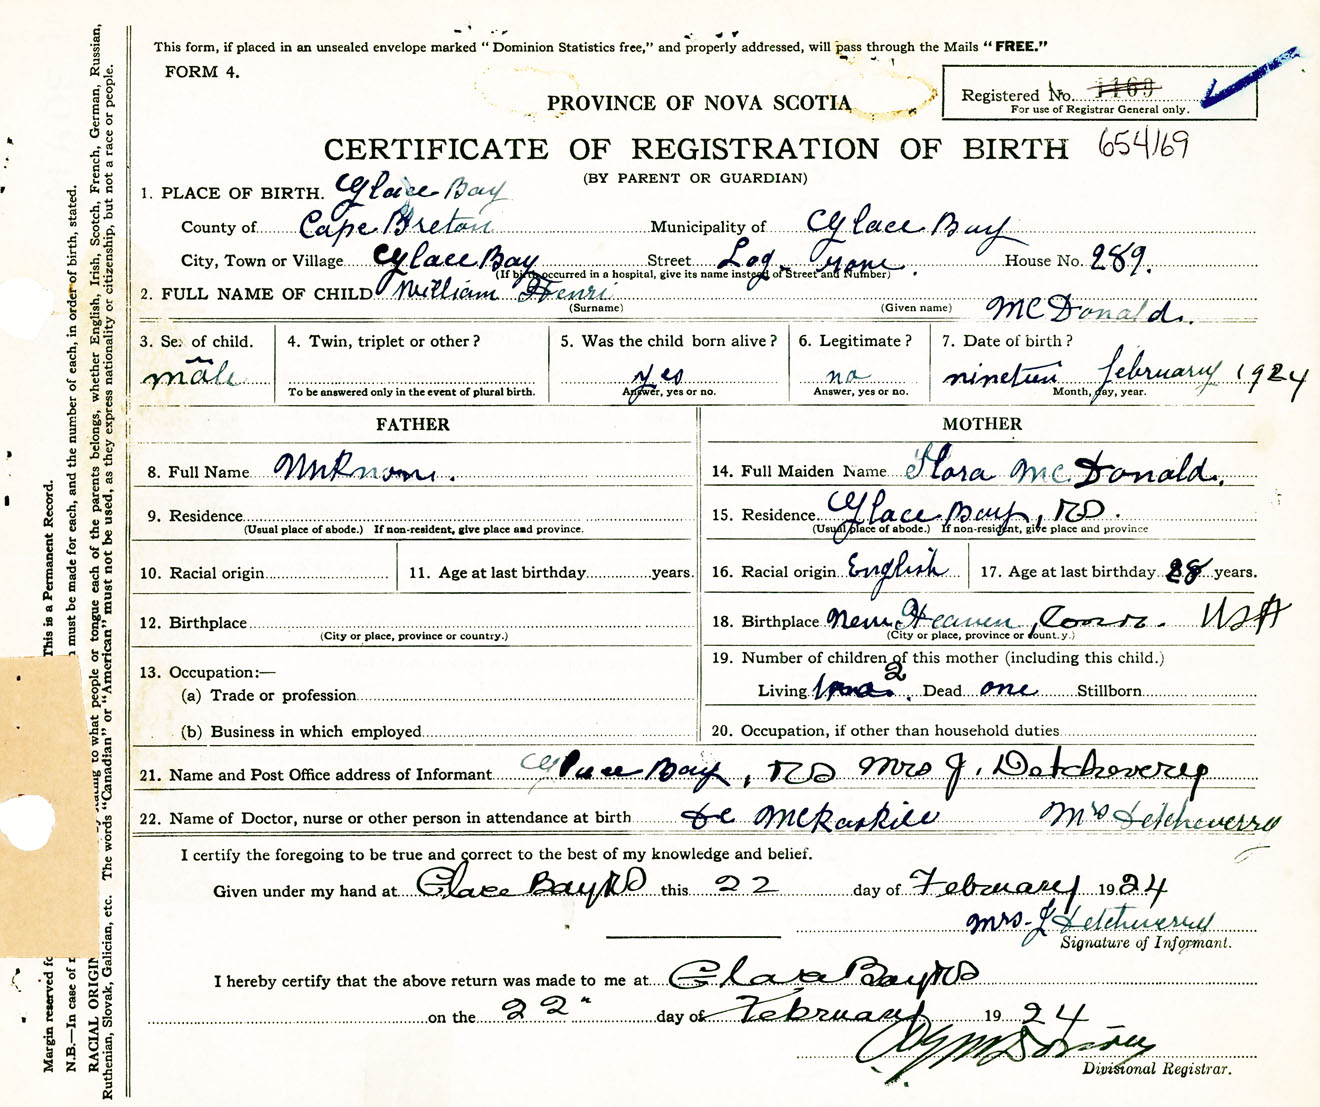 This form, if placed in an unsealed envelope marked "Dominion Statistics free," and properly addressed, will pass through the Mails "FREE."
FORM 4.
Registered No. 1169
For use of Registrar General only.
PROVINCE OF NOVA SCOTIA
CERTIFICATE OF REGISTRATION OF BIRTH 654169
(BY PARENT OR GUARDIAN)
1. PLACE OF BIRTH. Glace Bay
County of Cape Breton Municipality of Glace Bay
City, Town or Village Glace Bay Street House No. 289.
(If birth occurred in a hospital, give its name instead of Street and Number)
2. FULL NAME OF CHILD William Henri McDonald.
(Surname) (Given name)
3. Sex of child. 4. Twin, triplet or other? 5. Was the child born alive? 6. Legitimate? 7. Date of birth?
male yes no nineteen february 1924
To be answered only in the event of plural birth. Answer, yes or no. Answer, yes or no. Month, day, year.
FATHER MOTHER
8. Full Name Unknown. 14. Full Maiden Name Flora McDonald.
9. Residence 15. Residence Glace Bay, NS.
(Usual place of abode.) If non-resident, give place and province. (Usual place of abode.) If non-resident, give place and province
10. Racial origin 11. Age at last birthday years. 16. Racial origin English 17. Age at last birthday 28 years.
12. Birthplace 18. Birthplace New Heaven, Conn. USA
(City or place, province or country.) (City or place, province or country.)
13. Occupation:— 19. Number of children of this mother (including this child.)
(a) Trade or profession Living 2 Dead one Stillborn
(b) Business in which employed 20. Occupation, if other than household duties
21. Name and Post Office address of Informant Glace Bay, NS Mrs J. Detcheverry
22. Name of Doctor, nurse or other person in attendance at birth Mrs Detcheverry
I certify the foregoing to be true and correct to the best of my knowledge and belief.
Given under my hand at Glace Bay NS this 22 day of February 1924
Mrs J Detcheverry
Signature of Informant.
I hereby certify that the above return was made to me at Glace Bay NS
on the 22" day of February 1924
Divisional Registrar.
Margin reserved
This is a Permanent Record.
N.B.—In case of
must be made for each, and the number of each, in order of birth, stated.
RACIAL ORIGIN
to what people or tongue each of the parents belongs, whether English, Irish, Scotch, French, German, Russian,
Ruthenian, Slovak, Galician, etc. The words "Canadian" or "American" must not be used, as they express nationality or citizenship, but not a race or people.